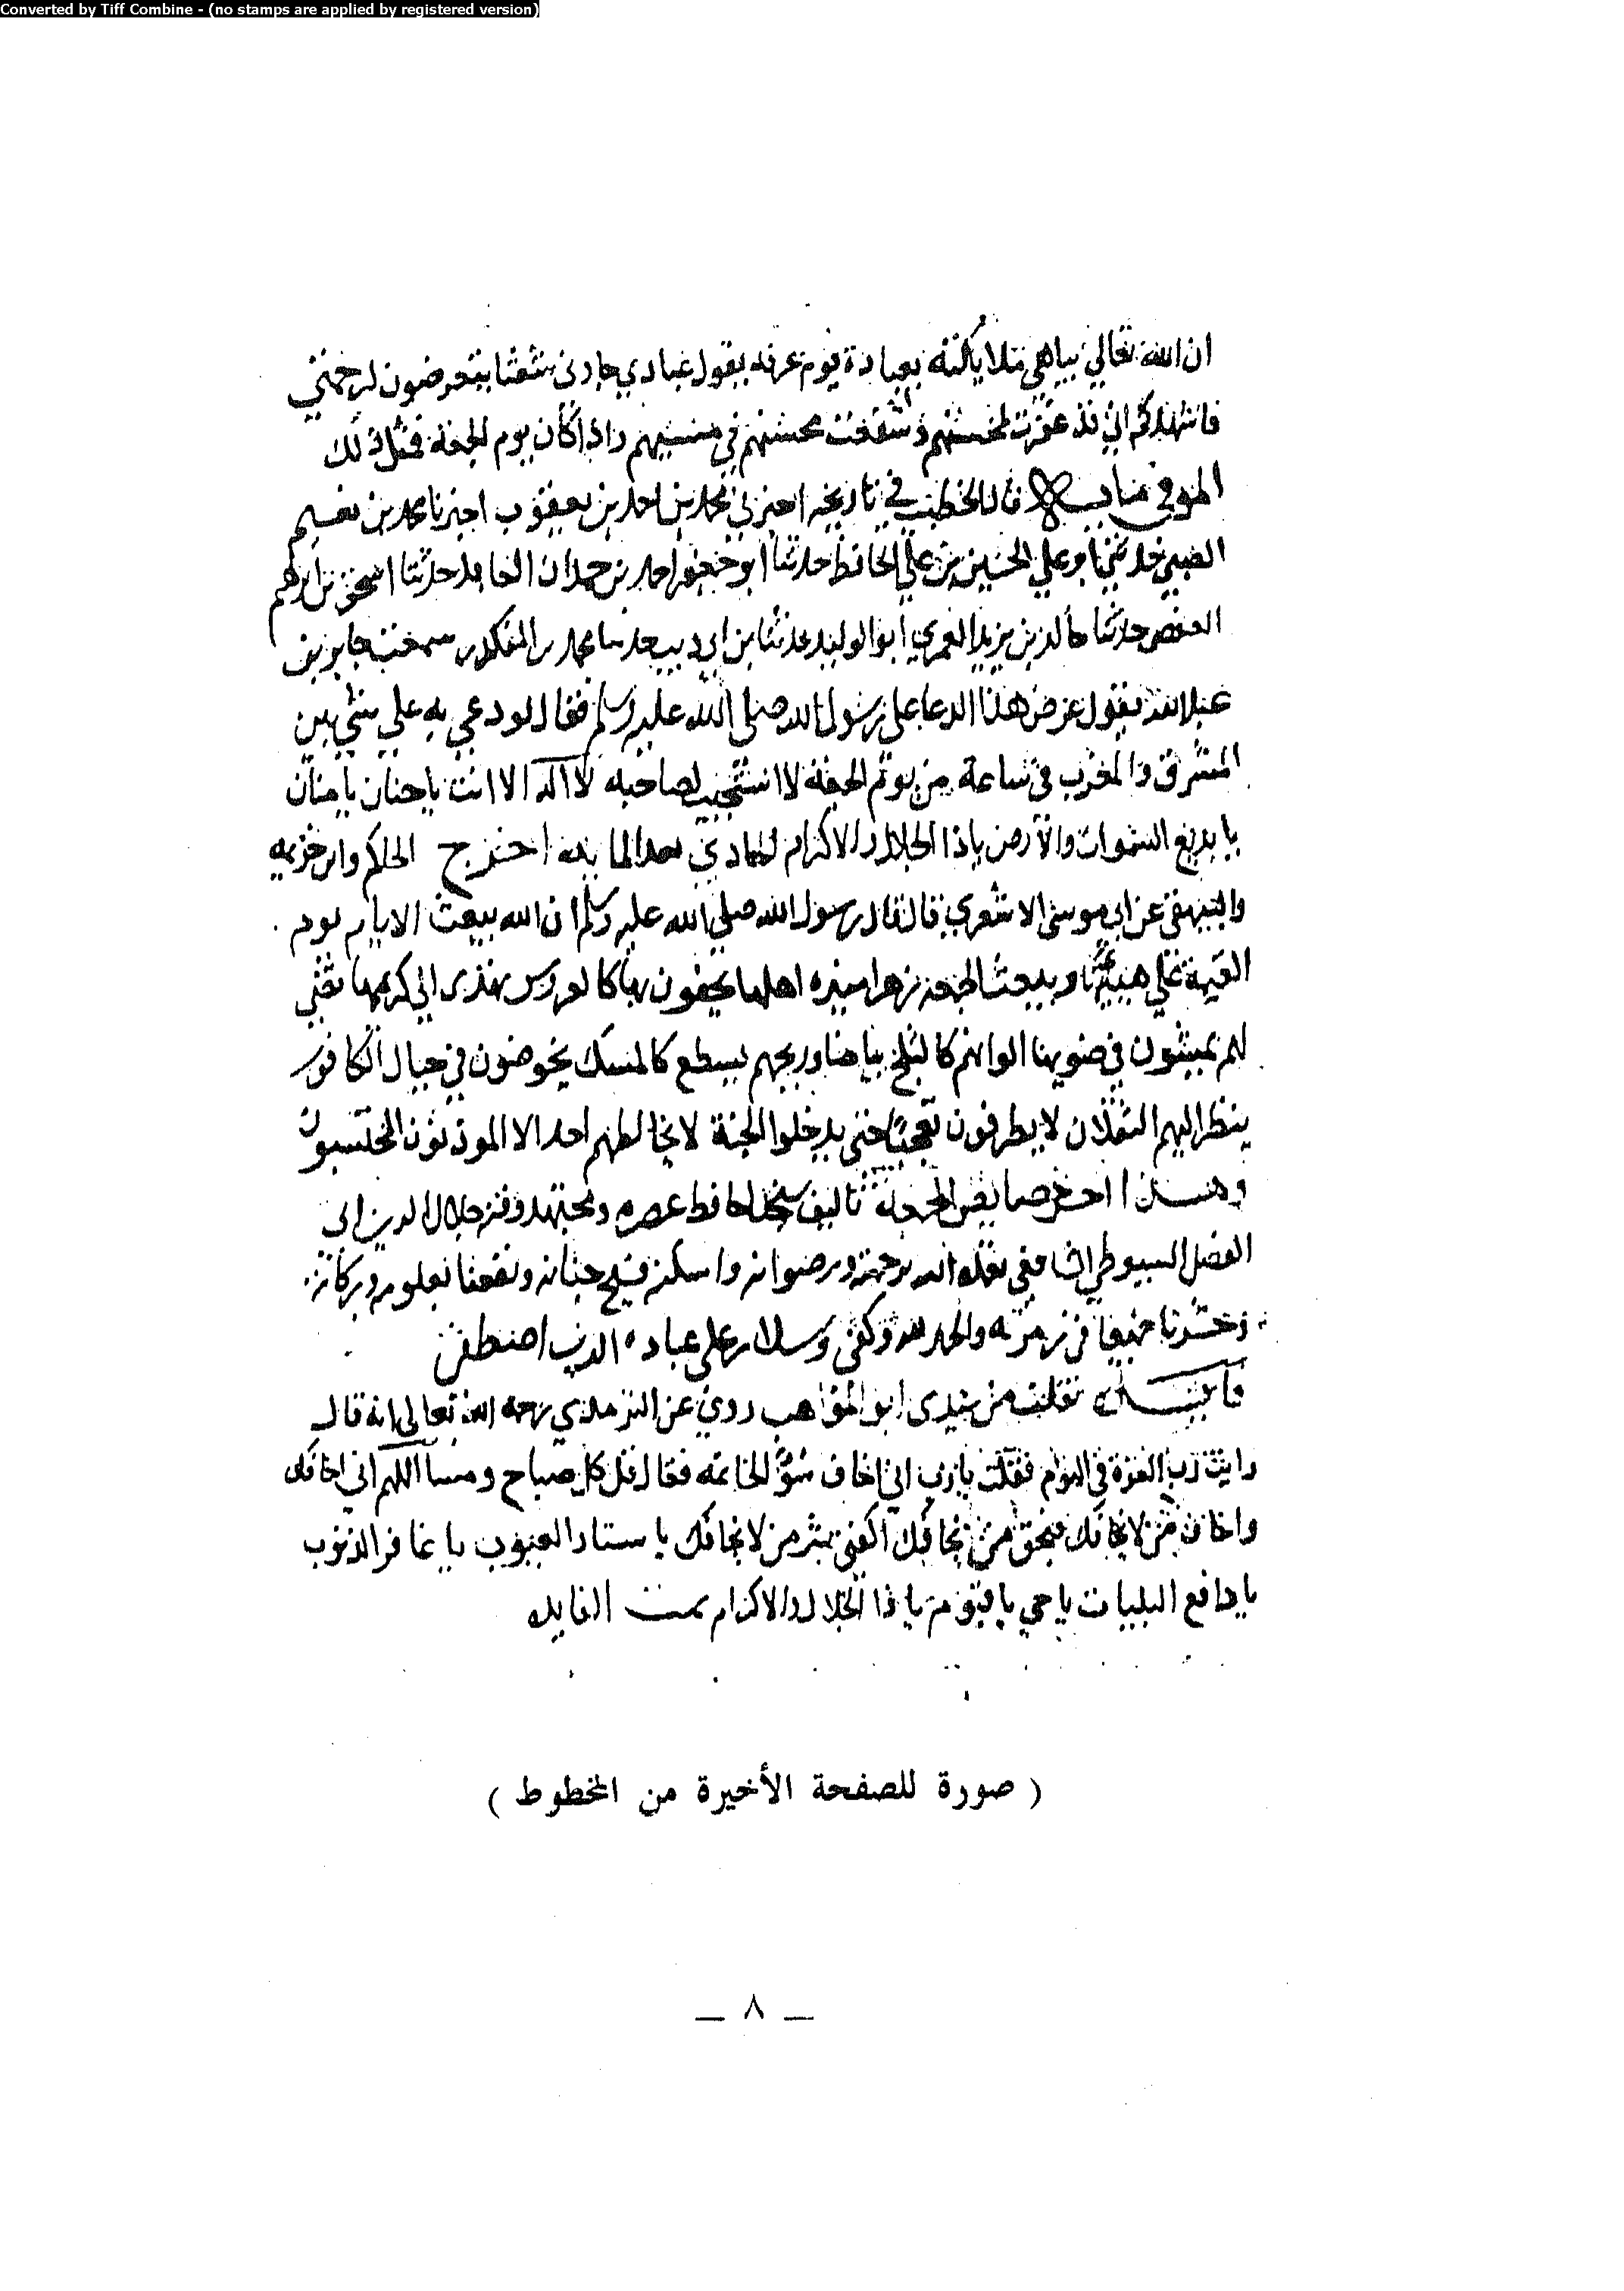 Converted by Tiff Combine - (no stamps are applied by registered version)
ان الله تعالى يباهي ملايكته بعباده يوم عرفه يقول عبادي جاوني شعثا يتعرضون لرحمتي
فاشهدكم اني قد غفرت لمحسنهم وشفعت محسنهم في مسيهم واذا كان يوم الجمعة فمثل ذلك
الموفى قال الخطيب في تاريخه اخبرني محمد بن احمد بن يعقوب اخبرنا محمد بن نعيم
الضبي حدثني ابو علي الحسين بن علي الحافظ حدثنا ابو جعفر احمد بن حمدان العابد حدثنا اسحق بن ابرهيم
حدثنا خالد بن يزيد العمري ابو الوليد حدثنا بن ابي ذيب حدثنا محمد بن المنكدر سمعت جابر بن
عبد الله يقول عرض هذا الدعا على رسول الله صلى الله عليه وسلم فقال لو دعي به على شي بين
المشرق والمغرب في ساعة من يوم الجمعة لا استجيب لصاحبه لا اله الا انت يا حنان يا منان
يا بديع السموات والارض يا ذا الجلال والاكرام الحادي بعد المايه اخرج الحاكم وابن خزيمه
والبيهقي عن ابي موسى الاشعري قال قال رسول الله صلى الله عليه وسلم ان الله يبعث الايام يوم
القيمة على هيئتها ويبعث الجمعة زهرا منيره اهلها يحفون بها كالعروس تهدى الى كريمها تضي
لهم يمشون في ضويها الوانهم كالثلج بياضا وريحهم يسطع كالمسك يخوضون في جبال الكافور
ينظر اليهم الثقلان لا يطرفون تعجبا حتى يدخلوا الجنة لا يخالطهم احد الا الموذنون المحتسبون
وهذا اخر خصايص الجمعة تاليف حافظ عصره ومجتهد وقته جلال الدين ابي
الفضل السيوطي الشافعي تغمده الله برحمته ورضوانه واسكنه فسيح جنانه ونفعنا بعلومه وبركاته
وحشرنا جميعا في زمرته والحمد لله وكفى وسلام على عباده الذين اصطفى
فايدة نقلت من سيدى ابو المواهب روي عن الترمذي رحمه الله تعالى انه قال
رايت رب العزة في النوم فقلت يا رب اني اخاف سؤ الخاتمه فقال قل كل صباح ومسا اللهم اني اخافك
واخاف من لا يخافك فبحق من يخافك اكفني شر من لا يخافك يا ستار العيوب يا غافر الذنوب
يا دافع البليات يا حي يا قيوم يا ذا الجلال والاكرام تمت الفايده
( صورة للصفحة الأخيرة من المخطوط )
— ٨ —